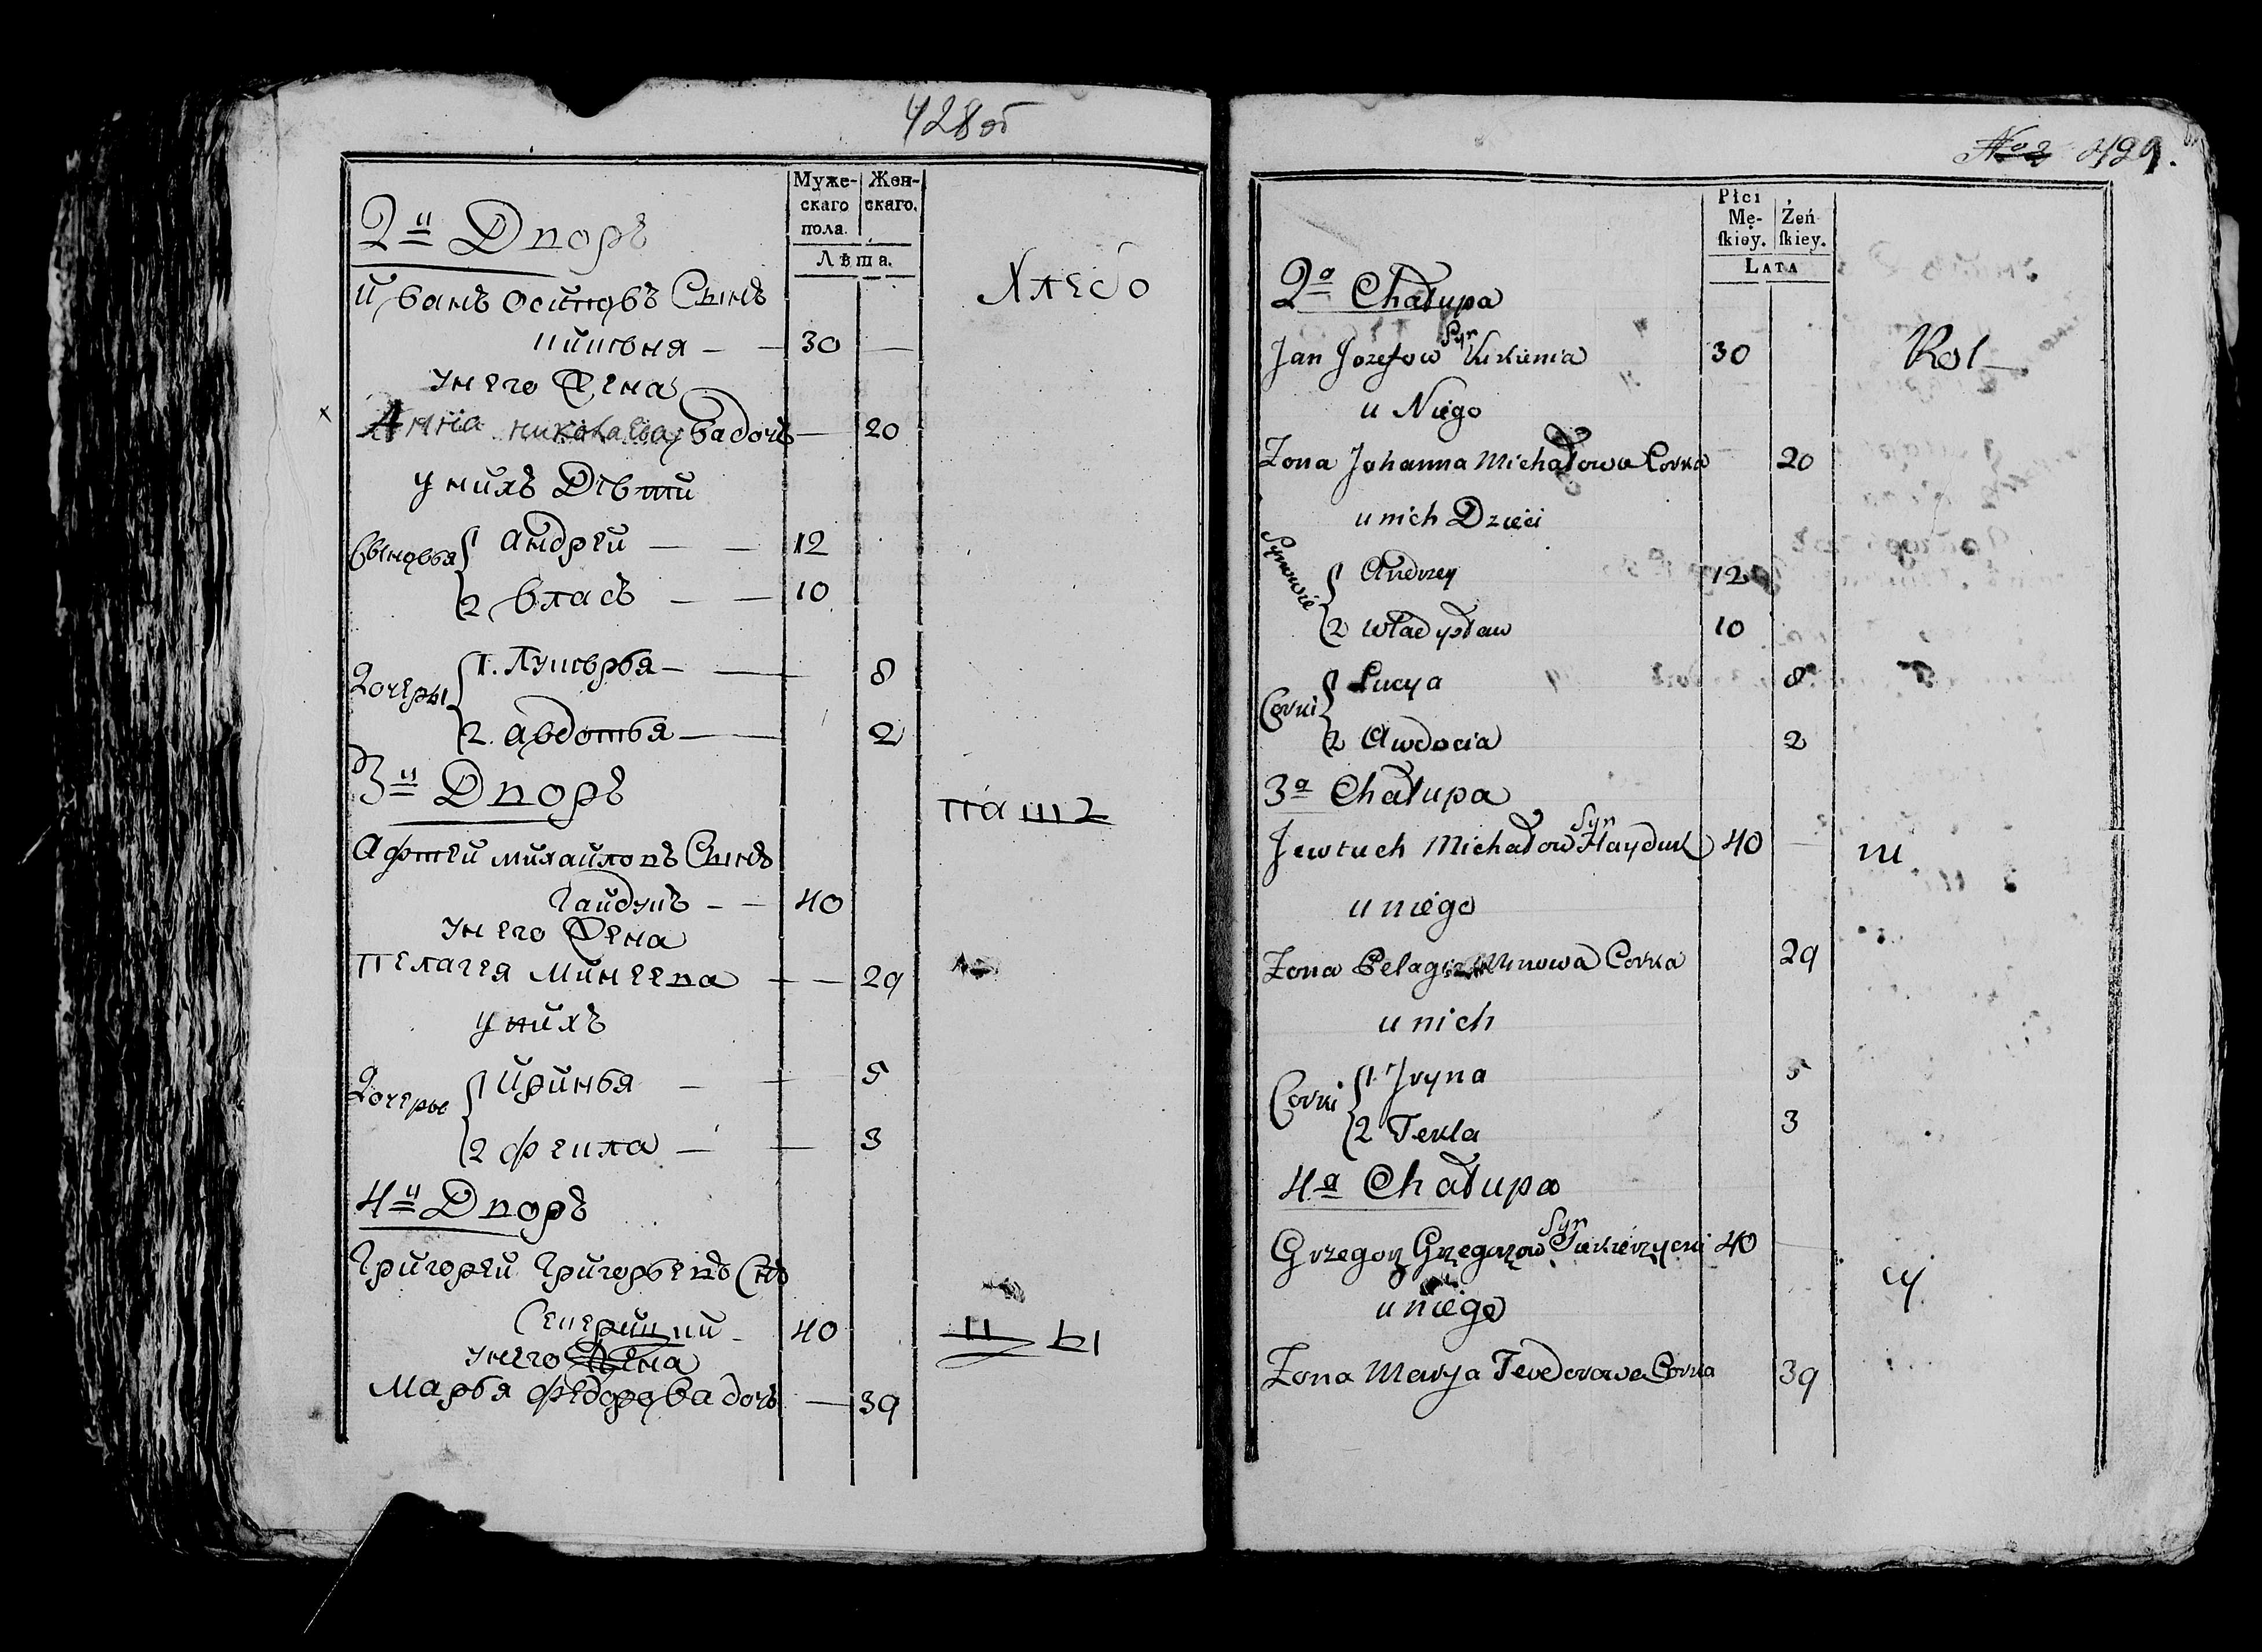 428об
Муже-
скаго
пола.
Жен-
скаго.
Лѣта.
2й Дворъ
Хлебо
Иванъ Осиповъ Сынъ
30
у него Жена
Анна Николаева дочь 20
у нихъ Дѣти
Сыновья 1 Андрей 12
2 Власъ 10
Дочеры 1. Лукерья 8
2. Авдотья 2
3й Дворъ
паш
Афтей Михайловъ Сынъ
Гайдукъ 40
у него Жена
Пелагея Минеева 29
у нихъ
Дочеры 1 Иринья 5
2 Фекла 3
4й Дворъ
Григорей Григорьевъ Снъ
40 цы
у него Жена
Марья Федорова дочь 39
No 2 429.
Płci
Mę-
ſkiey.
Żeń
ſkiey.
LATA
2a Chałupa
Jan Jozefow Syn 30 Rol
u Niego
Zona Johanna Michałowa Corka 20
u nich Dzieci
Synowie 1 Andrzey 12
2 Władysław 10
Corki 1 Lucya 8
2 Awdocia 2
3a Chałupa
Jewtuch Michałow Syn Hayduk 40 ni
u niego
Zona Pelagia Minowa Corka 29
u nich
Corki 1. Jryna 5
2 Tekla 3
4a Chałupa
Grzegorz Grzegorzow Syn Siekierzycki 40 cy
u niego
Zona Marya Teodorowa Corka 39